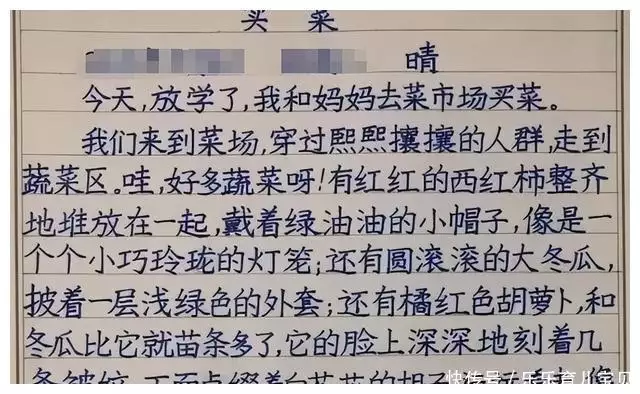 买菜
晴
今天,放学了,我和妈妈去菜市场买菜。
我们来到菜场,穿过熙熙攘攘的人群,走到
蔬菜区。哇,好多蔬菜呀!有红红的西红柿整齐
地堆放在一起,戴着绿油油的小帽子,像是一
个个小巧玲珑的灯笼;还有圆滚滚的大冬瓜,
披着一层浅绿色的外套;还有橘红色胡萝卜,和
冬瓜比它就苗条多了,它的脸上深深地刻着几
条皱纹,下面点缀着白花花的胡子
快传号 / 乐乐育儿宝贝